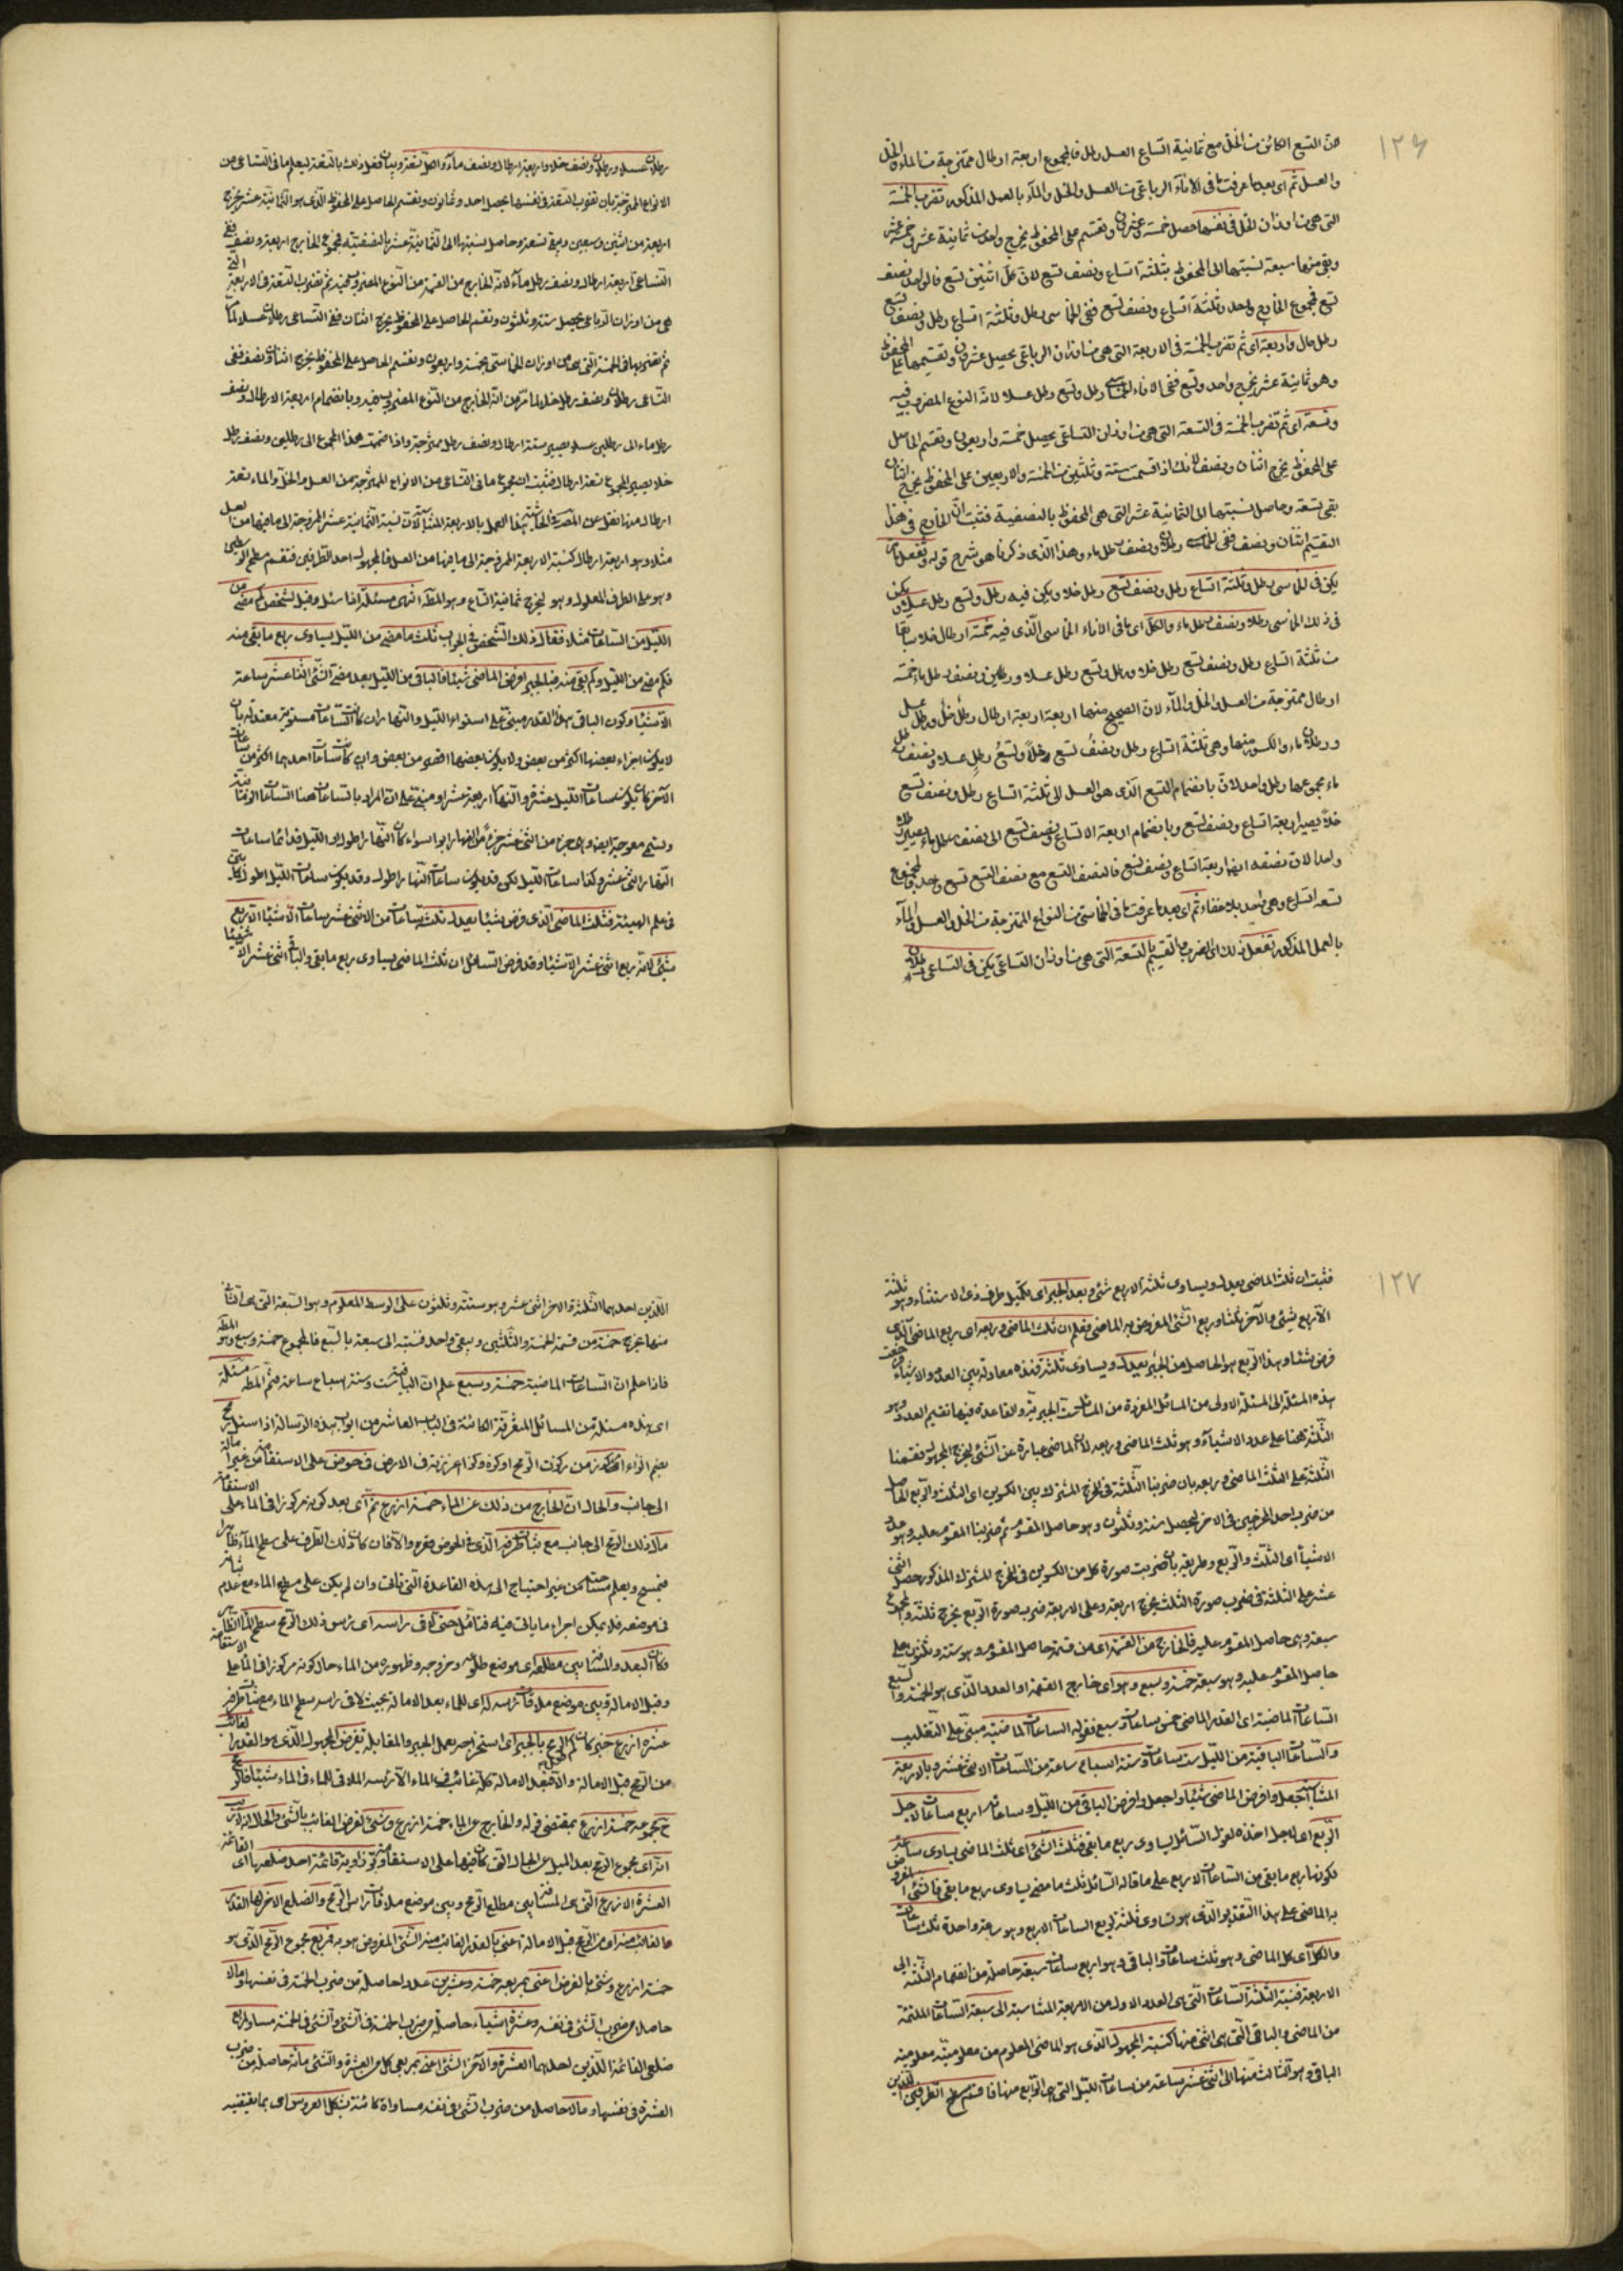 ١٢٦
من التسع الكائن من الخل مع ثمانية اتساع العسل رطل فالمجموع اربعة ارطال ممتزجة من الماء والخل
والعسل ثم اى بعد ما عرفت ما فى الاناء الرباعى من العسل والخل والماء بالعمل المذكور تضرب الخمسة
التى هى من اوزان الخل فى نفسها حصل خمسة وعشرون وتقسم على المحفوظ يخرج واحد من ثمانية عشر
ويبقى منها سبعة نسبتها الى المحفوظ بثلثة اتساع ونصف تسع لان كل اثنين تسع فالواحد نصف
تسع فمجموع الخارج واحد وثلثة اتساع ونصف تسع ففى الخماسى رطل وثلثة اتساع رطل ونصف تسع
رطل واربعة اى ثم تضرب الخمسة فى الاربعة التى هى من اوزان الرباعى يحصل عشرون وتقسيمها على المحفوظ
وهو ثمانية عشر يخرج واحد وتسع ففى الاناء رطل وتسع رطل عسلا لانه النوع المضروب فيه
وتسعة اى ثم تضرب الخمسة فى التسعة التى هى من اوزان التساعى يحصل خمسة واربعون وتقسم الحاصل
على المحفوظ يخرج اثنان ونصف لانك اذا قسمت ستة وثلثين من الخمسة والاربعين على المحفوظ يخرج اثنان
بقى تسعة وحاصل نسبتها الى الثمانية عشر التى هى المحفوظ بالنصفية فثبت ان الخارج فى هذا
التقسيم اثنان ونصف ففى رطلان ونصف رطل ماء وهذا الذى ذكرنا هو شرح قوله
يكن فى الخماسى رطل وثلثة اتساع رطل ونصف تسع رطل خلا ويكن فيه رطل وتسع رطل عسلا ويكن
فى ذلك الخماسى رطلان ونصف رطل ماء والكل اى ما فى الاناء الخماسى الذى فيه خمسة ارطال
من ثلثة اتساع رطل ونصف تسع رطل خلا ورطل وتسع رطل عسلا ورطلين ونصف رطل ماء خمسة
ارطال ممتزجة من العسل والخل والماء لان الصحيح منها اربعة اربعة ارطال رطل خل ورطل عسل
ورطلان ماء والكسور منها وهى ثلثة اتساع رطل ونصف تسع رطل خلا وتسع رطل عسلا ونصف رطل
ماء مجموعها رطل واحد لان بانضمام التسع الذى هو العسل الى ثلثة اتساع رطل ونصف تسع
خلا يصير اربعة اتساع ونصف تسع وبانضمام اربعة الاتساع ونصف تسع الى نصف رطل ماء يصير رطلا
واحدا لان نصفه ايضا اربعة اتساع ونصف تسع فالنصف التسع مع نصف التسع تسع واحد والمجموع
تسعة اتساع وهى واحد بلا خفاء ثم اى بعد ما عرفت ما فى الخماسى من النواع الممتزجة من الخل والعسل والماء
بالعمل المذكور تفعل ذلك اى الضرب والتقسيم بالتسعة التى هى من اوزان التساعى يكن فى التساعى رطلان
رطلان عسلا ورطلان ونصف خلا واربعة ارطال ونصف ماء
الانواع الممتزجة بان تضرب التسعة فى نفسها يحصل احد وثمانون وتقسم الحاصل على المحفوظ الذى هو الثمانية عشر يخرج
اربعة من اثنين وسبعين ويبقى تسعة وحاصل نسبتها الى الثمانية عشر بالنصفية فمجموع الخارج اربعة ونصف ففى
التساعى اربعة ارطال ونصف رطل ماء لانه الخارج من القسمة من النوع المضروب فيه ثم تضرب التسعة فى الاربعة التى
هى من اوزان الرباعى يحصل ستة وثلثون وتقسم الحاصل على المحفوظ يخرج اثنان ففى التساعى رطلان عسلا
ثم تضربها فى الخمسة التى هى من اوزان الخماسى خمسة واربعون وتقسم الحاصل على المحفوظ يخرج اثنان ونصف ففى
التساعى رطلان ونصف رطل خلا لما مر من انه الخارج من النوع المضروب فيه وبانضمام اربعة الارطال ونصف
رطل ماء الى رطلين عسلا يصير ستة ارطال ونصف رطل ممتزجة واذا ضممت هذا المجموع الى رطلين ونصف رطل
خلا يصير المجموع تسعة ارطال فثبت ان مجموع ما فى التساعى من الانواع الممتزجة من العسل والخل والماء تسعة
مثلا وهو اربعة ارطال كنسبة الاربعة الممزوجة الى ما فيها من العسل فالمجهول احد الطرفين فنقسم مسطح الوسطين
وهو على الطرف المعلوم وهو يخرج ثمانية اتساع وهو المط انتهى مسئلة اذا سئل وقيل لشخص كم مضى من
الليل من الساعات مثلا فقال ذلك الشخص فى الجواب ثلث ما مضى من الليل يساوى ربع ما بقى منه
فكم مضى من الليل وكم بقى منه فبالجبر افرض الماضى شيئا فالباقى من الليل بعد مضى الشئ اثنا عشر ساعة
الا شيئا وكون الباقى بهذا القدر مبنى على استواء الليل والنهار
لا يكون اجزاء بعضها اكثر من بعض ولا يكون بعضها اقصر من بعض وان كانت ساعات احدهما اكثر من ساعات
الآخر كان يكون ساعات الليل عشرة والنهار اربعة عشر او مبنى على ان المراد بالساعات هنا الساعات الزمانية
النهار اثنى عشر وكذا ساعات الليل لكن قد يكون ساعات النهار اطول وقد يكون ساعات الليل اطول
فى علم الهيئة فثلث الماضى الذى فرض شيئا يعدل ثلث ساعات من الاثنى عشر ساعات الا شيئا الا ربع
شئ لانه ربع اثنى عشر الا شيئا وقد فرض السائل ان ثلث الماضى يساوى ربع ما بقى والباقى اثنى عشر الا شيئا
١٢٧
فثبت ان ثلث الماضى يعدل ويساوى ثلثة الا ربع شئ وبعد الجبر اى بتكميل طرف ذى الاستثناء وهو ثلثة
الا ربع شئ والآخر ثلثا وربع الشئ المفروض به الماضى فعلم ان ثلث الماضى وربعه اى ربع الماضى الذى
فرض شيئا وهذا الربع هو الحاصل من الجبر يعدل ويساوى ثلثة فهذه معادلة بين العدد والاشياء
هذه المسئلة الى المسئلة الاولى من المسائل المفردة من المسائل الست الجبرية والقاعدة فيها تقسيم العدد وهو
الثلثة هنا على عدد الاشياء وهو ثلث الماضى وربعه لان الماضى عبارة عن الشئ ليخرج المجهول فقسمنا
الثلثة على الثلث الماضى وربعه بان ضربنا الثلثة فى المخرج المشترك بين الكسرين اى الثلث والربع الحاصل
من ضرب احد المخرجين فى الآخر ليحصل ستة وثلثون وهو حاصل المقسوم ثم ضربنا المقسوم عليه وهو عدد
الاشياء اى الثلث والربع وطريقه بان ضربت صورة كل من الكسرين فى المخرج المشترك المذكور حصل اثنى
عشر على الثلثة فى ضرب صورة الثلث يخرج اربعة وعلى الاربعة ضرب صورة الربع يخرج ثلثة والمجموع
سبعة وهى حاصل المقسوم عليه فالخارج من القسمة اى من قسمة حاصل المقسوم وهو ستة وثلثون على
حاصل المقسوم عليه وهو سبعة خمسة وسبع وهو اى خارج القسمة او العدد الذى هو الخمسة والسبع
الساعات الماضية اى القدر الماضى خمس ساعات وسبع فقوله الساعات الماضية مبنى على التغليب
والساعات الباقية من الليل ست ساعات وستة اسباع ساعة من الساعات الاثنى عشر وبالاربعة
المتناسبة اجعل وافرض الماضى شيئا واجعل وافرض الباقى من الليل وساعاته اربع ساعات لاجل
الربع اى لاجل اخذه لقول السائل يساوى ربع ما بقى فثلث الشئ اى ثلث الماضى يساوى ساعة
لكونها ربع ما بقى من الساعات الاربع على ما قاله السائل ثلث ما مضى يساوى ربع ما بقى فالشئ المفروض
به الماضى على هذا التقدير الذى هو تساوى ثلثه لربع الساعات الاربع وهو ساعة واحدة ثلث ساعات
والكل اى كل الماضى وهو ثلث ساعات والباقى وهو اربع ساعات سبعة حاصلة من انضمام الثلثة الى
الاربعة فنسبة الثلثة الساعات التى هى العدد الاول من الاربعة المتناسبة الى سبعة الساعات الملتئمة
من الماضى والباقى التى هى الثانى منها كنسبة المجهول الذى هو الماضى المعلوم من معلوميته معلومية
الباقى وهو الثالث منها الى اثنى عشر ساعة من ساعات الليل التى هى الرابع منها فاقسم مسطح الطرفين اللذين
اللذين احدهما الثلثة والآخر اثنى عشر وهو ستة وثلثون على الوسط المعلوم وهو السبعة التى هى الثانى
منها يخرج خمسة من قسمة الخمسة والثلثين ويبقى واحد فنسبته الى سبعة بالسبع فالمجموع خمسة وسبع وهو المط
فاذا علم ان الساعات الماضية خمسة وسبع علم ان الباقية ست وستة اسباع ساعة فتم المط مسئلة
اى هذه مسئلة من المسائل المتفرقة الكائنة فى الباب العاشر من ابواب هذه الرسالة اذا سئل رمح
مركوز من ركزت الرمح اركزه ركزا غرزته فى الارض فى حوض على الاستقامة من غير امالة
الى جانب والحال ان الخارج من ذلك عن الماء خمسة اذرع ثم اى بعد كونه مركوزا فى الماء على الاستقامة
مال ذلك الرمح الى جانب مع ثبات طرفه الذى فى الحوض
فيمسح ويعلم مساحته من غير احتياج الى هذه القاعدة التى تأتى وان لم يكن على سطح الماء مع عدم ثباته
فى موضعه فلا يمكن اجراء ما يأتى فيه فتأمل حتى لاقى رأسه اى رأس ذلك الرمح سطح الماء
فكان البعد والمسافة بين مطلعه اى موضع طلوعه وخروجه وظهوره من الماء حال كونه مركوزا فى الماء على الاستقامة
وقبل الامالة وبين موضع ملاقاة رأسه له اى للماء بعد الامالة بحيث لاقى رأسه سطح الماء مع ثبات طرفه
عشرة اذرع كم الرمح بالجبر اى استخراجه بعمل الجبر والمقابلة تفرض المجهول الذى هو القدر الغائب
من الرمح قبل الامالة والا فبعد الامالة كله غائب فى الماء الا رأسه الملاقى للماء فى الماء شيئا فالرمح
مجموعه خمسة اذرع بمقتضى قوله والخارج عن الماء خمسة اذرع وشئ لفرض الغائب بالشئ والحال
انه اى مجموع الرمح بعد الميل عن الحال التى كان فيها على الاستقامة وتر زاوية قائمة احد ضلعيها اى القائمة
العشرة الاذرع التى هى المسافة بين مطلع الرمح وبين موضع ملاقاة رأس الرمح والضلع الآخر لها القدر
الغائب منه اى من الرمح قبل الامالة اعنى بالقدر الغائب منه الشئ المفروض هو به فمربع مجموع الرمح الذى هو
خمسة اذرع وشئ بالفرض اعنى بمربعه خمسة وعشرين عددا حاصلة من ضرب الخمسة فى نفسها ومالا
حاصلا من ضرب الشئ فى نفسه وعشرة اشياء حاصلة من ضرب الخمسة فى الشئ والشئ فى الخمسة مساو لمربعى
ضلعى القائمة اللذين احدهما العشرة والآخر الشئ اعنى بمربعى كل من العشرة والشئ مأة حاصلة من ضرب
العشرة فى نفسها ومالا حاصلا من ضرب الشئ فى نفسه مساواة كائنة بشكل العروس اى بما يقتضيه